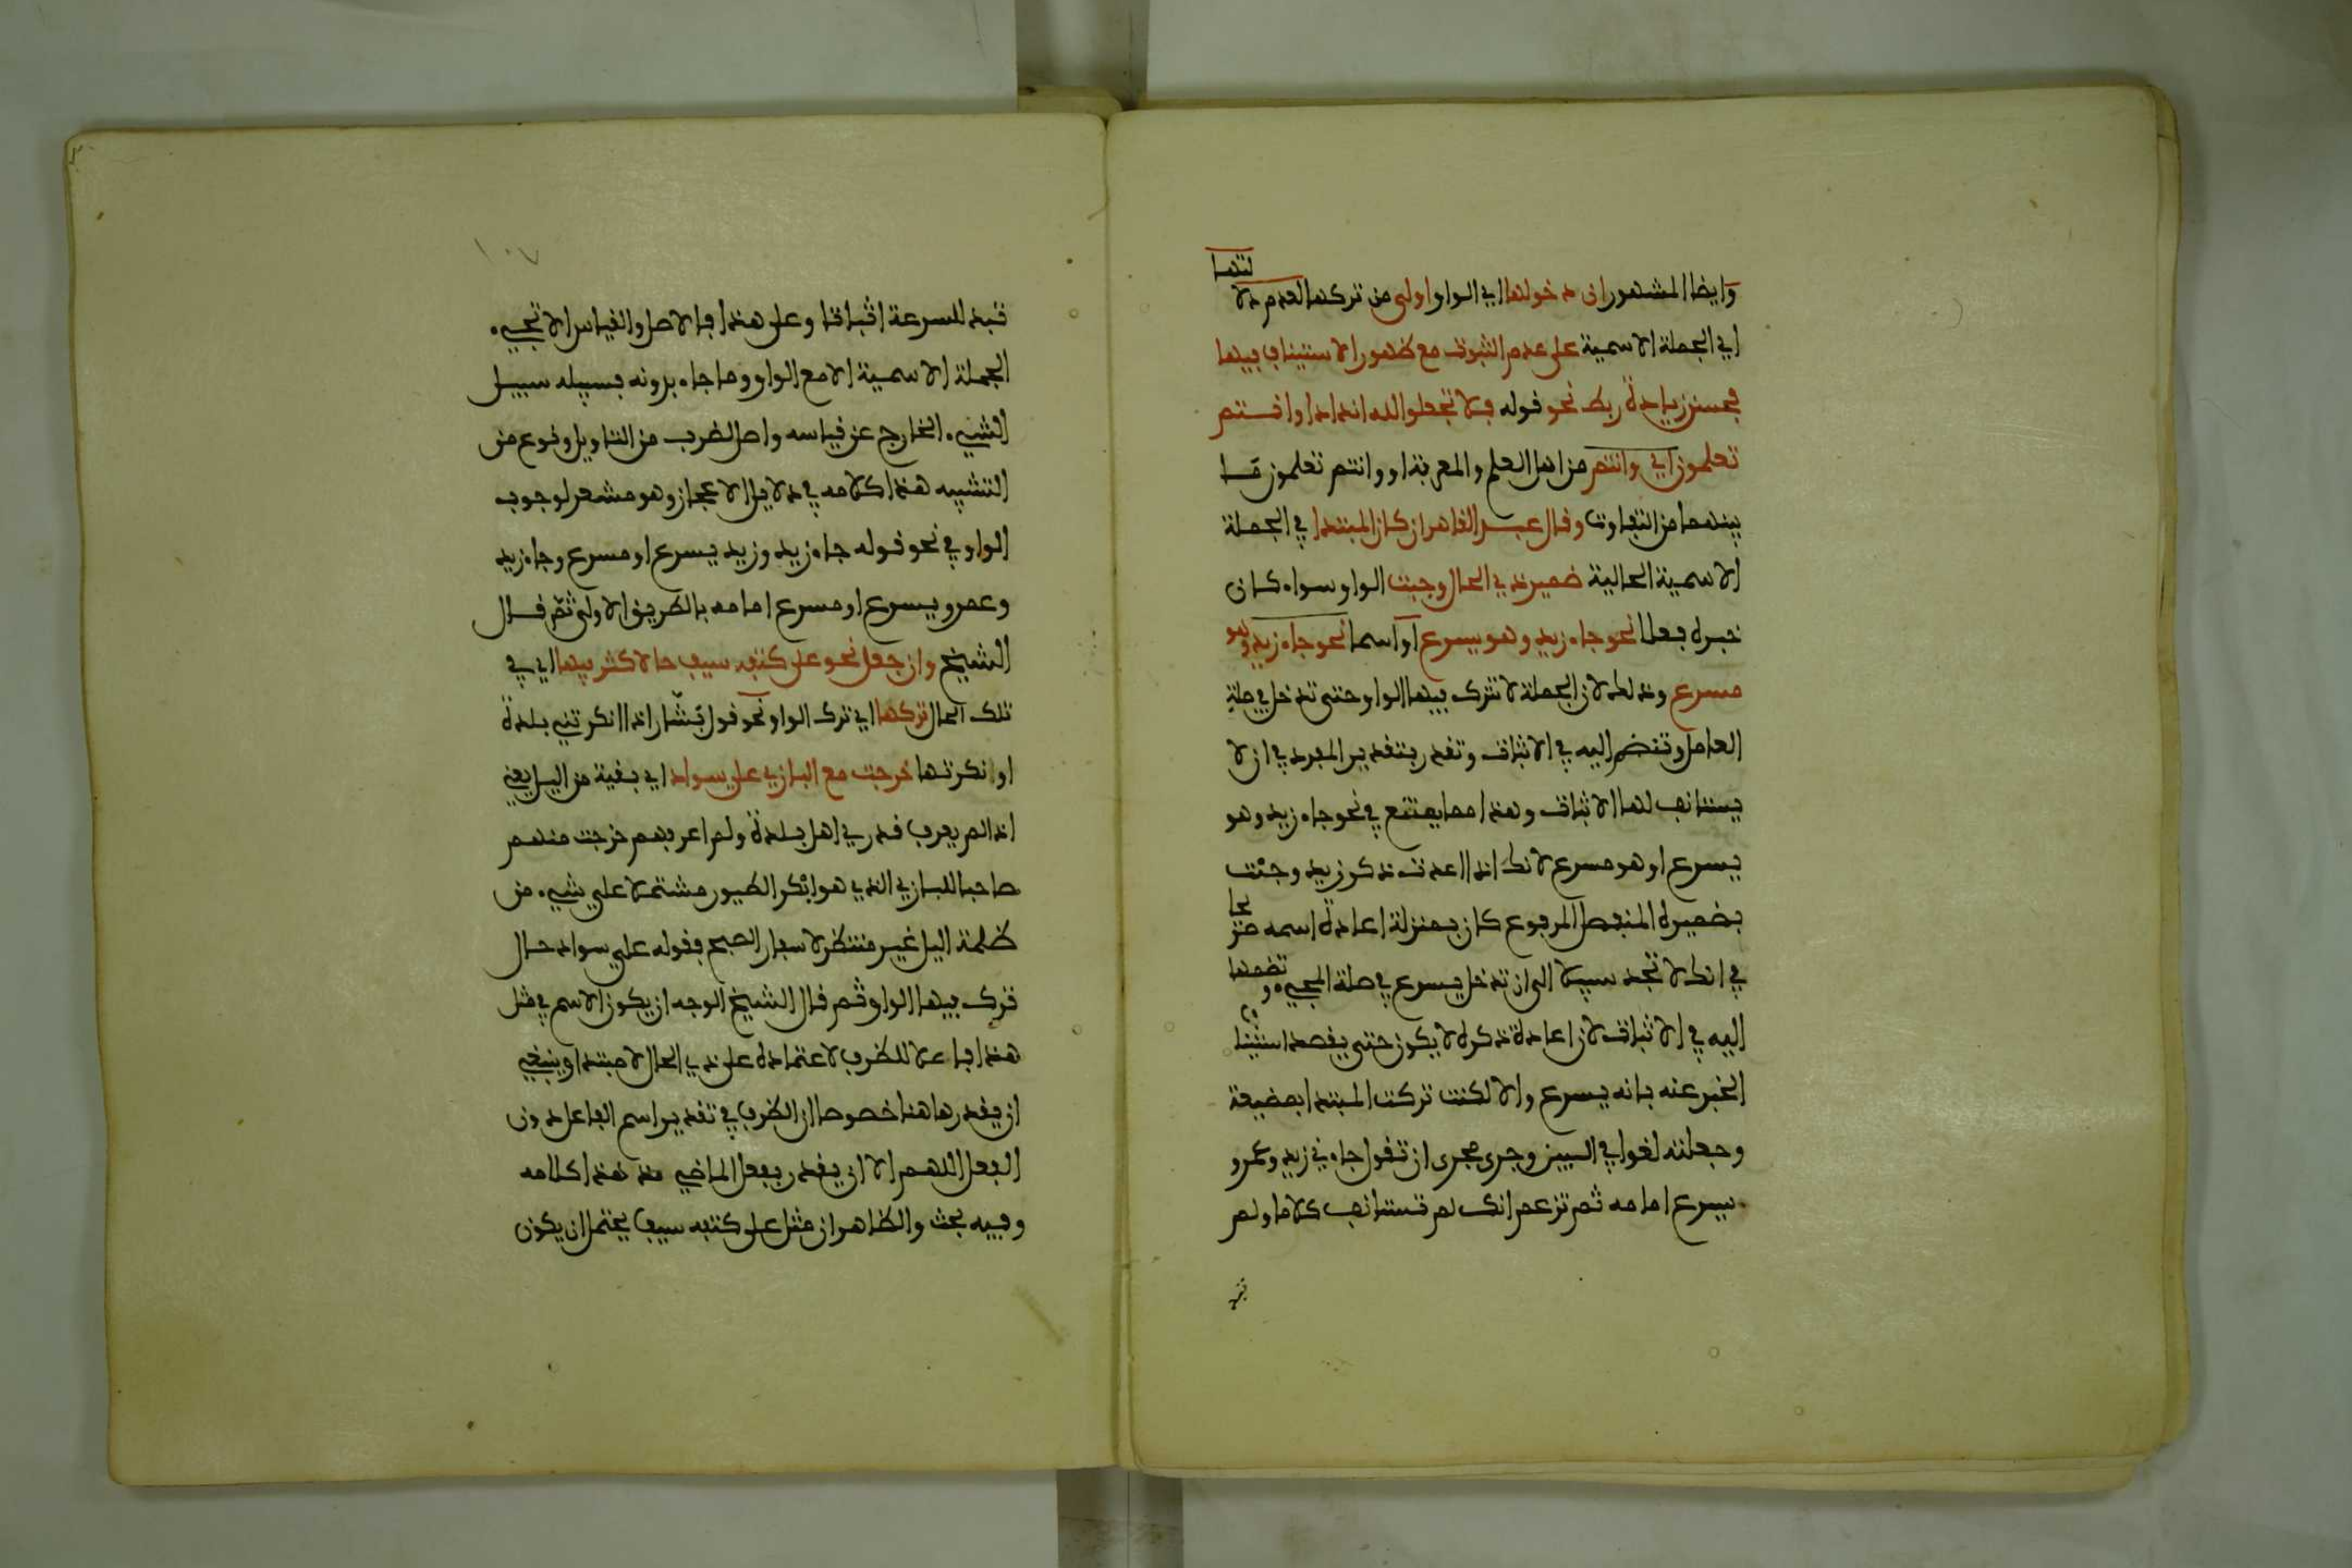 وايضا المشهور ان دخولها اي الواو اولى من تركها لعدم دلا لتها
اي الجملة الاسمية على عدم الثبوت مع ظهور الاستيناف فيها
فحسن زيادة ربط نحو قوله فلا تجعلوا لله اندادا وانتم
تعلمون اي وانتم من اهل العلم والمعرفة او وانتم تعلمون ما
بينهما من التفاوت وقال عبد القاهر ان كان المبتدا في الجملة
الاسمية الحالية ضمير ذي الحال وجبت الواو سواء كان
خبره فعلا نحو جاء زيد وهو يسرع او اسما نحو جاء زيد وهو
مسرع وذلك لان الجملة لا تترك فيها الواو حتى تدخل في صلة
العامل وتنضم اليه في الاثبات وتقدر بتقدير المفرد في ان لا
يستانف لها الاثبات وهذا مما يمتنع في نحو جاء زيد وهو
يسرع او هو مسرع لانك اذا اعدت ذكر زيد وجئت
بضميره المنفصل المرفوع كان بمنزلة اعادة اسمه صريحا
في انك لا تجد سبيلا الى ان تدخل يسرع في صلة المجيء وتضمها
اليه في الاثبات لان اعادة ذكره لا يكون حتى يقصد استينا ف
الخبر عنه بانه يسرع والا لكنت تركت المبتدا بمضيعة
وجعلته لغوا في البين وجرى مجرى ان تقول جاءني زيد وعمرو
يسرع امامه ثم تزعم انك لم تستانف كلاما ولم
تبتد
١٠٧
تبتد للسرعة اثباتا وعلى هذا فالاصل والقياس الا تجيء
الجملة الاسمية الا مع الواو وما جاء بدونه فسبيله سبيل
الشيء الخارج عن قياسه واصل لضرب من التاويل ونوع من
التشبيه هذا كلامه في دلايل الاعجاز وهو مشعر لوجوب
الواو في نحو قوله جاء زيد وزيد يسرع او مسرع وجاء زيد
وعمرو يسرع او مسرع امامه بالطريق الاولى ثم قال
الشيخ وان جعل نحو على كتفه سيف حالا كثر فيها اي في
تلك الحال تركها اي ترك الواو نحو قول بشار اذا انكرتني بلدة
او نكرتها خرجت مع البازي علي سواد اي بقية من اليل يعني
اذا لم يعرف قدري اهل بلدة ولم اعرفهم خرجت منهم
صاحبا للبازي الذي هو ابكر الطيور مشتملا علي شيء من
ظلمة اليل غير منتظر لاسفار الصبح فقوله علي سواد حال
ترك فيها الواو ثم قال الشيخ الوجه ان يكون الاسم في مثل
هذا فاعلا للظرف لاعتماده على ذي الحال لا مبتدا وينبغي
ان يقدر هاهنا خصوصا ان الظرف في تقدير اسم الفاعل دون
الفعل اللهم الا ان يقدر بفعل الماضي مع هذا كلامه
وفيه بحث والظاهر ان مثل على كتفه سيف يحتمل ان يكون